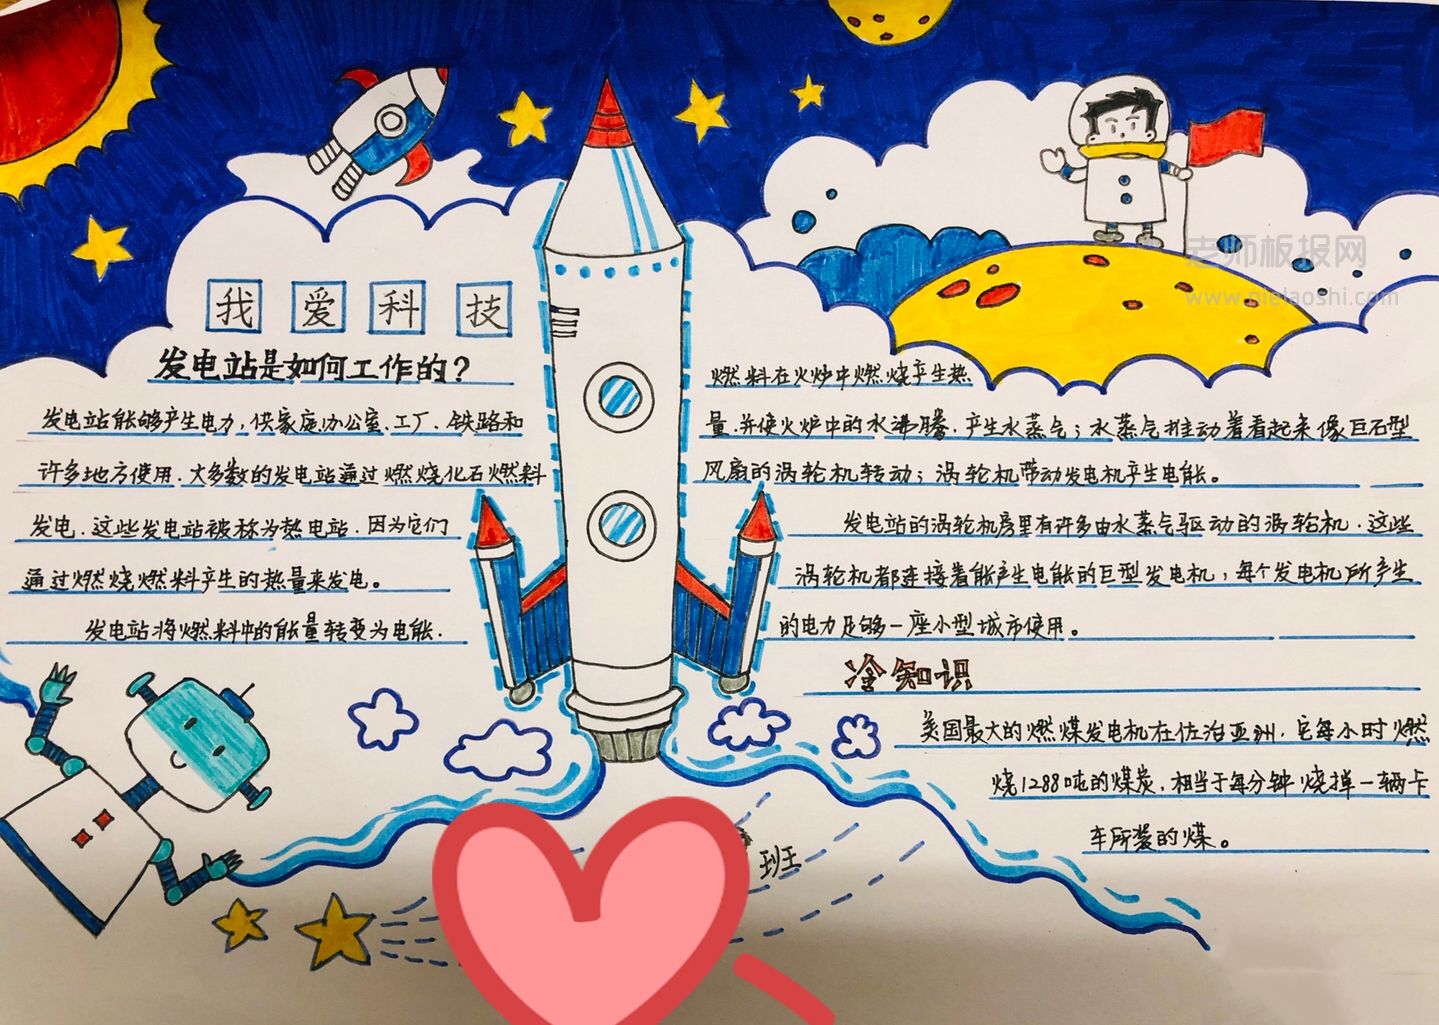 我爱科技
发电站是如何工作的？
发电站能够产生电力，供家庭、办公室、工厂、铁路和
许多地方使用．大多数的发电站通过燃烧化石燃料
发电．这些发电站被称为热电站．因为它们
通过燃烧燃料产生的热量来发电。
发电站将燃料中的能量转变为电能．
燃料在火炉中燃烧产生热
量．并使火炉中的水沸腾，产生水蒸气；水蒸气推动着看起来像巨石型
风扇的涡轮机转动；涡轮机带动发电机产生电能。
发电站的涡轮机房里有许多由水蒸气驱动的涡轮机．这些
涡轮机都连接着能产生电能的巨型发电机，每个发电机所产生
的电力足够一座小型城市使用。
冷知识
美国最大的燃煤发电机在佐治亚洲．它每小时燃
烧1288吨的煤炭，相当于每分钟烧掉一辆卡
车所装的煤。
班
老师板报网
www.mielaoshi.com